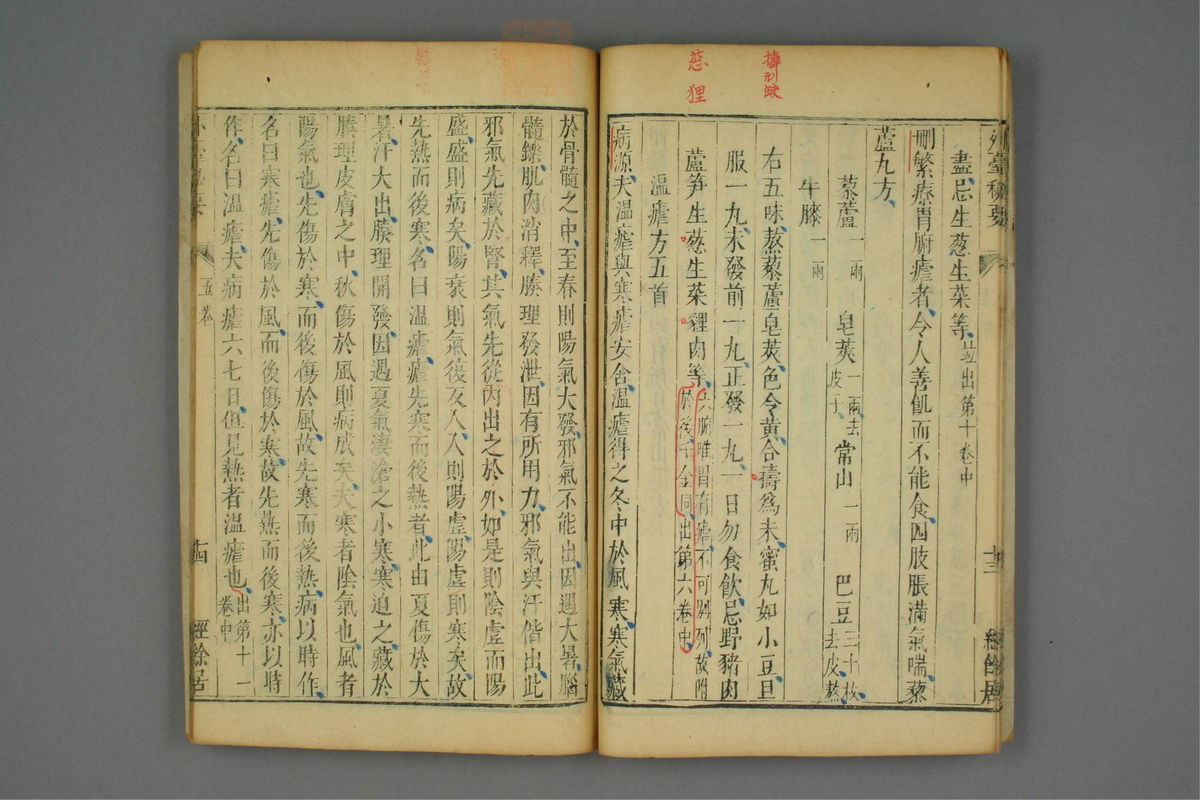 擣刋皴
葱
狸
外臺秘要
十三
經餘居
盡忌生葱生菜等並出第十卷中
刪繁療胃腑瘧者令人善飢而不能食四肢脹滿氣喘藜
蘆丸方
藜蘆一兩 皂莢一兩去皮子 常山一兩 巴豆三十枚去皮熬
牛膝一兩
右五味熬藜蘆皂莢色令黄合擣爲末蜜丸如小豆旦
服一丸未發前一丸正發一丸一日勿食飲忌野豬肉
蘆笋生葱生菜貍肉等六腑唯胃有瘧不可別列故附於後千金同出第六卷中
溫瘧方五首
病源夫溫瘧與寒瘧安舍溫瘧得之冬中於風寒寒氣藏
於骨髓之中至春則陽氣大發邪氣不能出因遇大暑腦
髓鑠肌肉消釋腠理發泄因有所用力邪氣與汗偕出此
邪氣先藏於腎其氣先從内出之於外如是則陰虛而陽
盛盛則病矣陽衰則氣復反入入則陽虛陽虛則寒矣故
先熱而後寒名曰溫瘧瘧先寒而後熱者此由夏傷於大
暑汗大出腠理開發因遇夏氣淒滄之小寒寒迫之藏於
腠理皮膚之中秋傷於風則病成矣夫寒者陰氣也風者
陽氣也先傷於寒而後傷於風故先寒而後熱病以時作
名曰寒瘧先傷於風而後傷於寒故先熱而後寒亦以時
作名曰溫瘧夫病瘧六七日但見熱者溫瘧也出第十一卷中
五卷
十四
經餘居